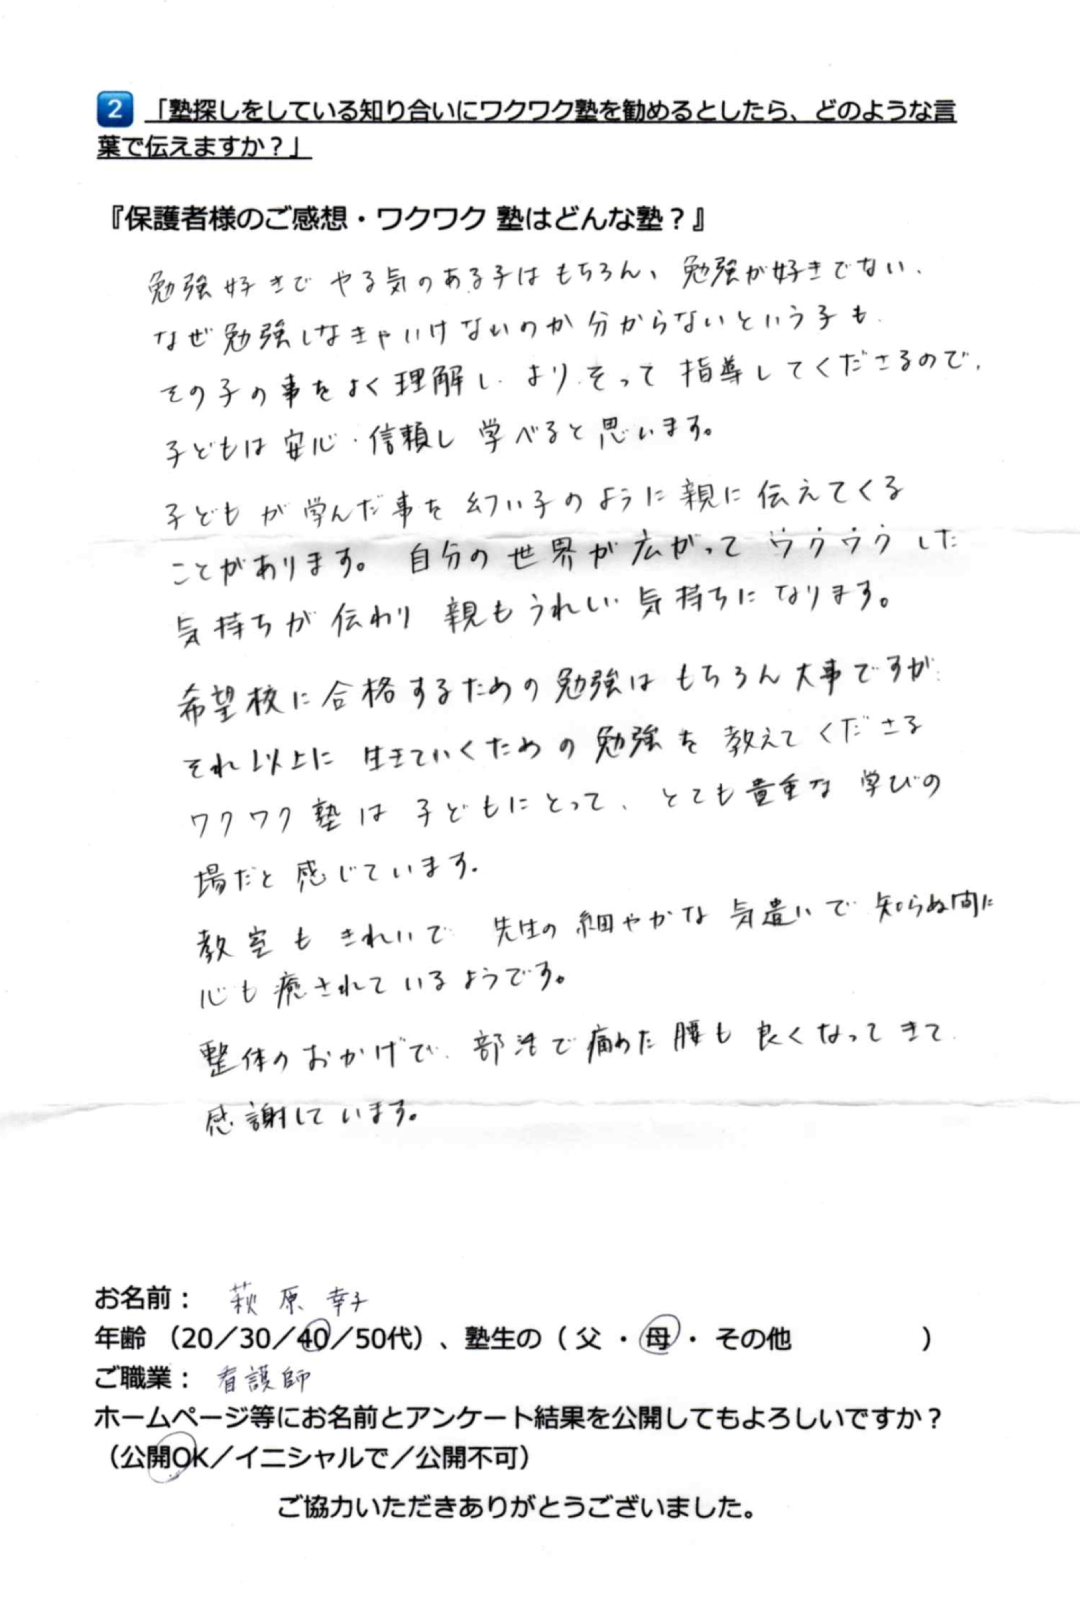 2 「塾探しをしている知り合いにワクワク塾を勧めるとしたら、どのような言
葉で伝えますか？」
『保護者様のご感想・ワクワク 塾はどんな塾？』
勉強好きで やる気のある子はもちろん、勉強が好きでない、
なぜ勉強しなきゃいけないのか分からないという子も、
その子の事をよく理解し、よりそって指導してくださるので、
子どもは安心・信頼し学べると思います。
子どもが学んだ事を幼い子のように親に伝えてくる
ことがあります。自分の世界が広がってワクワクした
気持ちが伝わり 親もうれしい気持ちになります。
希望校に合格するための勉強はもちろん大事ですが、
それ以上に 生きていくための勉強を教えてくださる
ワクワク塾は子どもにとって、とても貴重な学びの
場だと感じています。
教室もきれいで 先生の細やかな気遣いで知らぬ間に
心も癒されているようです。
整体のおかげで、部活で痛めた腰も良くなってきて
感謝しています。
お名前： 萩原 幸子
年齢 （20／30／40／50代）、塾生の（ 父 ・ 母 ・ その他 ）
ご職業： 看護師
ホームページ等にお名前とアンケート結果を公開してもよろしいですか？
（公開OK／イニシャルで／公開不可）
ご協力いただきありがとうございました。